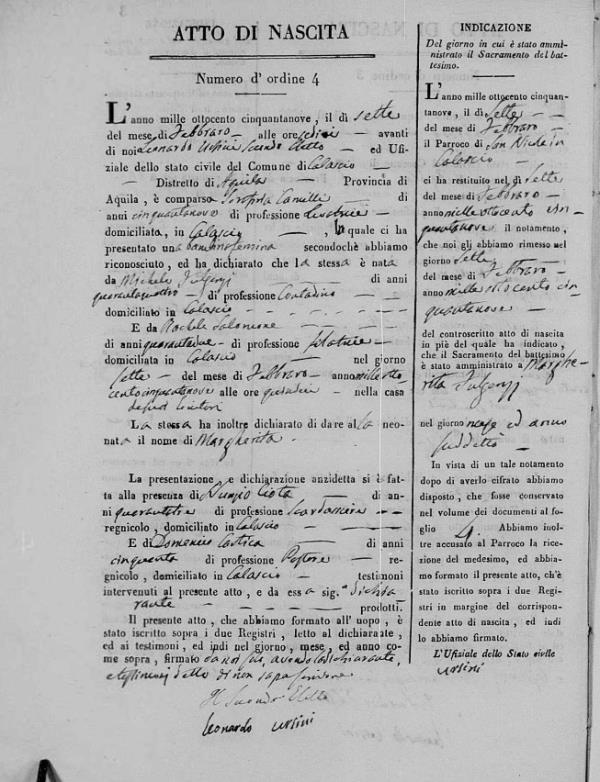 ATTO DI NASCITA
Numero d' ordine 4
L'anno mille ottocento cinquantanove, il dì sette
del mese di Febbraro — alle ore sedici — avanti
di noi Leonardo Ursini Secondo Eletto — ed Ufi-
ziale dello stato civile del Comune di Calascio —
— Distretto di Aquila — Provincia di
Aquila, è comparsa Camilla — di
anni cinquantanove di professione Levatrice —
domiciliata, in Calascio — , la quale ci ha
presentato una bambina femina secondochè abbiamo
riconosciuto, ed ha dichiarato che la stessa è nata
da Michele Fulgenzj — di anni
quarantaquattro — di professione Contadino —
domiciliato in Calascio —
E da Rachele Salomone —
di anni quarantadue — di professione filatrice —
domiciliata in Calascio — nel giorno
sette — del mese di Febbraro — anno mille otto
cento cinquantanove alle ore quindici — nella casa
de' suoi genitori
La stessa ha inoltre dichiarato di dare alla neo-
nata il nome di Margherita —
La presentazione, e dichiarazione anzidetta si è fat-
ta alla presenza di Nunzio Ciota — di an-
ni quarantatre di professione Cardassiere —
regnicolo, domiciliato in Calascio —
E di Domenico — di anni
cinquanta di professione Pastore — re-
gnicolo, domiciliato in Calascio — testimoni
intervenuti al presente atto, e da essa sig.ª dichia
rante — prodotti.
Il presente atto, che abbiamo formato all' uopo, è
stato iscritto sopra i due Registri, letto al dichiarante,
ed ai testimoni, ed indi nel giorno, mese, ed anno co-
me sopra, firmato da noi avendo la dichiarante,
e testimonj detto di non saper scrivere
Il Secondo Eletto
Leonardo Ursini
INDICAZIONE
Del giorno in cui è stato ammi-
nistrato il Sacramento del bat-
tesimo.
L'anno mille ottocento cinquan-
tanove, il dì sette —
del mese di Febbraro —
il Parroco di San Nicola in
Calascio —
ci ha restituito nel dì sette
del mese di Febbraro —
anno mille ottocento cin
quantanove il notamento,
che noi gli abbiamo rimesso nel
giorno sette —
del mese di Febbraro —
anno mille ottocento cin
quantanove —
del controscritto atto di nascita
in piè del quale ha indicato,
che il Sacramento del battesimo
è stato amministrato a Marghe-
rita Fulgenzj
nel giorno mese ed anno
suddetto —
In vista di un tale notamento
dopo di averlo cifrato abbiamo
disposto, che fosse conservato
nel volume dei documenti al fo-
glio 4. Abbiamo inol-
tre accusato al Parroco la rice-
zione del medesimo, ed abbia-
mo formato il presente atto, ch'è
stato iscritto sopra i due Regi-
stri in margine del corrispon-
dente atto di nascita, ed indi
lo abbiamo firmato.
L'Ufiziale dello Stato civile
Ursini